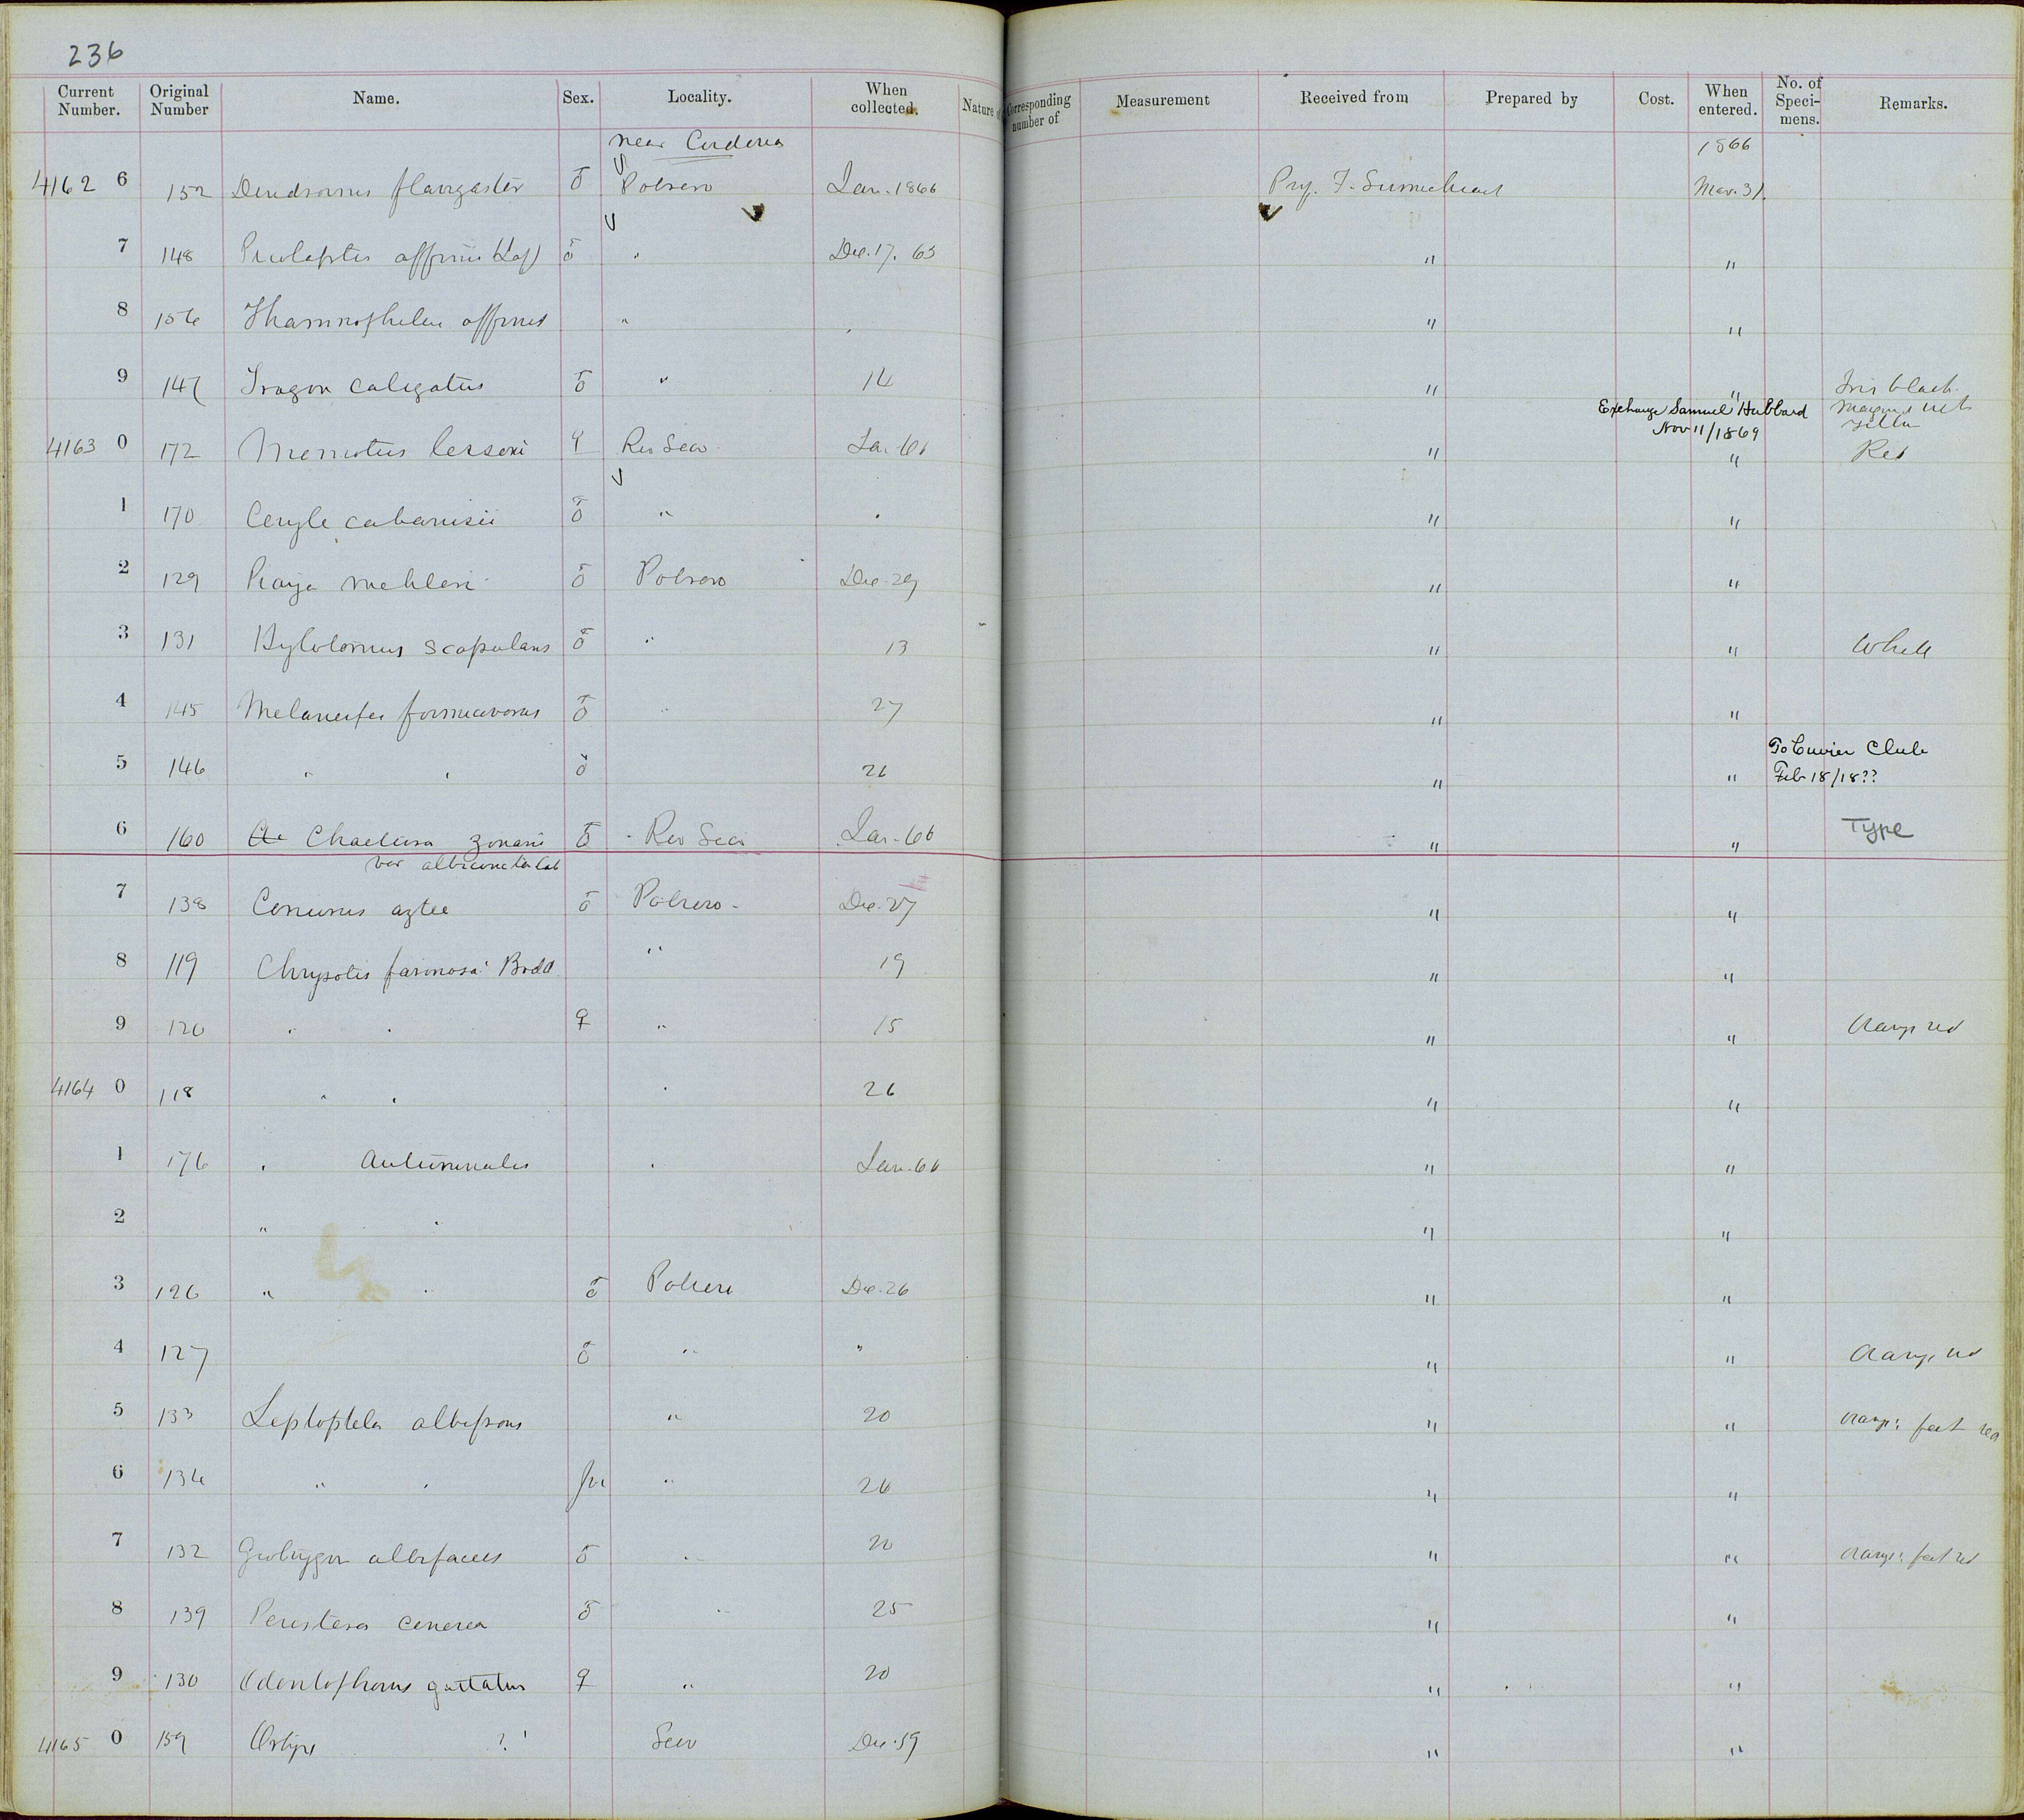 236
Current Number. Original Number Name. Sex. Locality. When collected. Nature Corresponding number of Measurement Received from Prepared by Cost. When entered. No. of Speci- mens. Remarks.
near Cordova 1866
4162 6 152 Dendrornis flavigaster ♂ Potrero Jan. 1866 F. Sumichrast Mar. 31.
7 148 affinis ♂ " Dec. 17. 65 " "
8 156 Thamnophilus affinis " " "
9 147 Trogon caligatus ♂ " 14 " " Iris black.
Exchange Samuel Hubbard
Nov 11/1869
4163 0 172 Momotus lessoni ♀ Rio Seco Jan. 66 " " Red
1 170 Ceryle cabanisii ♂ " " " "
2 129 Piaya mehleri ♂ Potrero Dec. 29 " "
3 131 Hylotomus scapularis ♂ " 13 " " White
4 145 Melanerpes formicivorus ♂ " 27 " "
To Cuvier Club
5 146 " " ♂ 26 " " Feb 18/18??
6 160 Chaetura zonaris ♂ Rio Seco Jan. 66 " " Type
var
7 138 Conurus aztec ♂ Potrero Dec. 27 " "
8 119 Chrysotis farinosa Bodd " 19 " "
9 120 " " ♀ " 15 " " Orange red
4164 0 118 " " " 26 " "
1 176 " Autumnalis " Jan. 66 " "
2 " " " "
3 126 " " ♂ Potrero Dec. 26 " "
4 127 ♂ " " " " Orange red
5 133 Leptoptila albifrons " 20 " " Orange: feet red
6 134 " " " 26 " "
7 132 Geotrygon albifacies ♂ " 20 " " Orange: feet red
8 139 Peristera cinerea ♂ " 25 " "
9 130 Odontophorus guttatus ♀ " 20 " "
4165 0 159 Ortyx ? Seco Dec. 59 " "